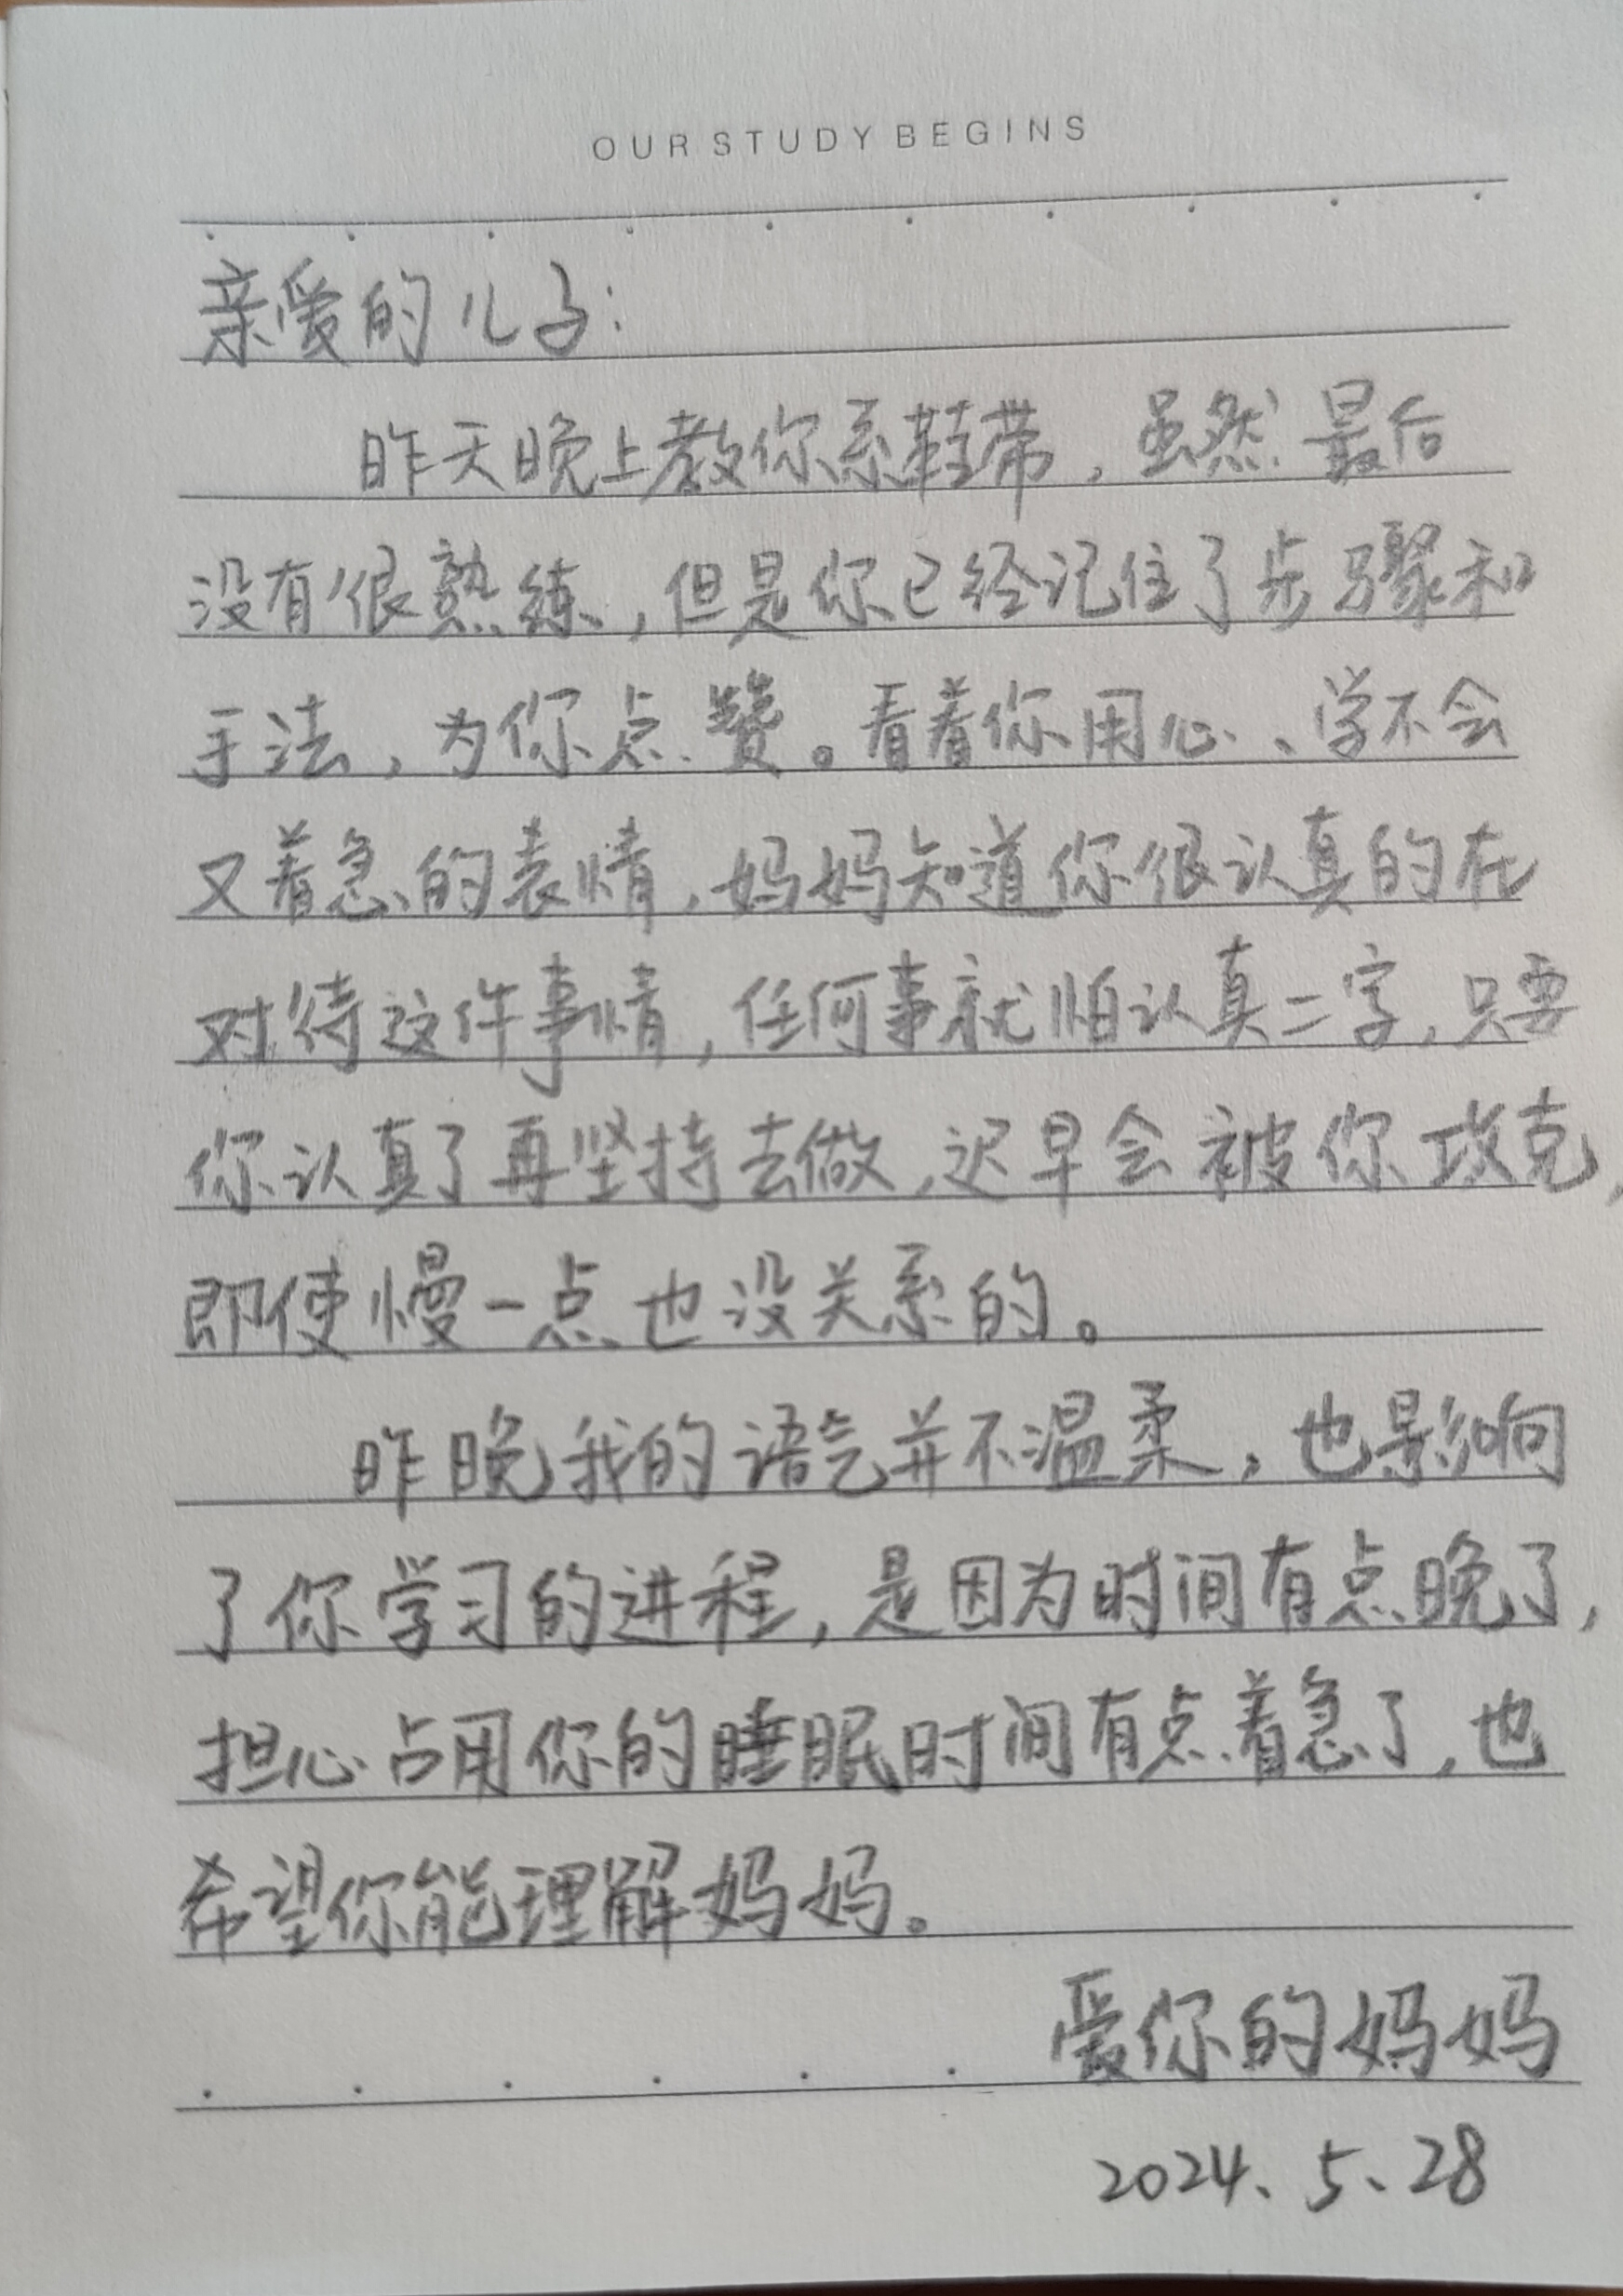 OUR STUDY BEGINS
亲爱的儿子:
昨天晚上教你系鞋带，虽然最后
没有很熟练，但是你已经记住了步骤和
手法，为你点赞。看着你用心、学不会
又着急的表情，妈妈知道你很认真的在
对待这件事情，任何事就怕认真二字，只要
你认真了再坚持去做，迟早会被你攻克，
即使慢一点也没关系的。
昨晚我的语气并不温柔，也影响
了你学习的进程，是因为时间有点晚了，
担心占用你的睡眠时间有点着急了，也
希望你能理解妈妈。
爱你的妈妈
2024、5、28